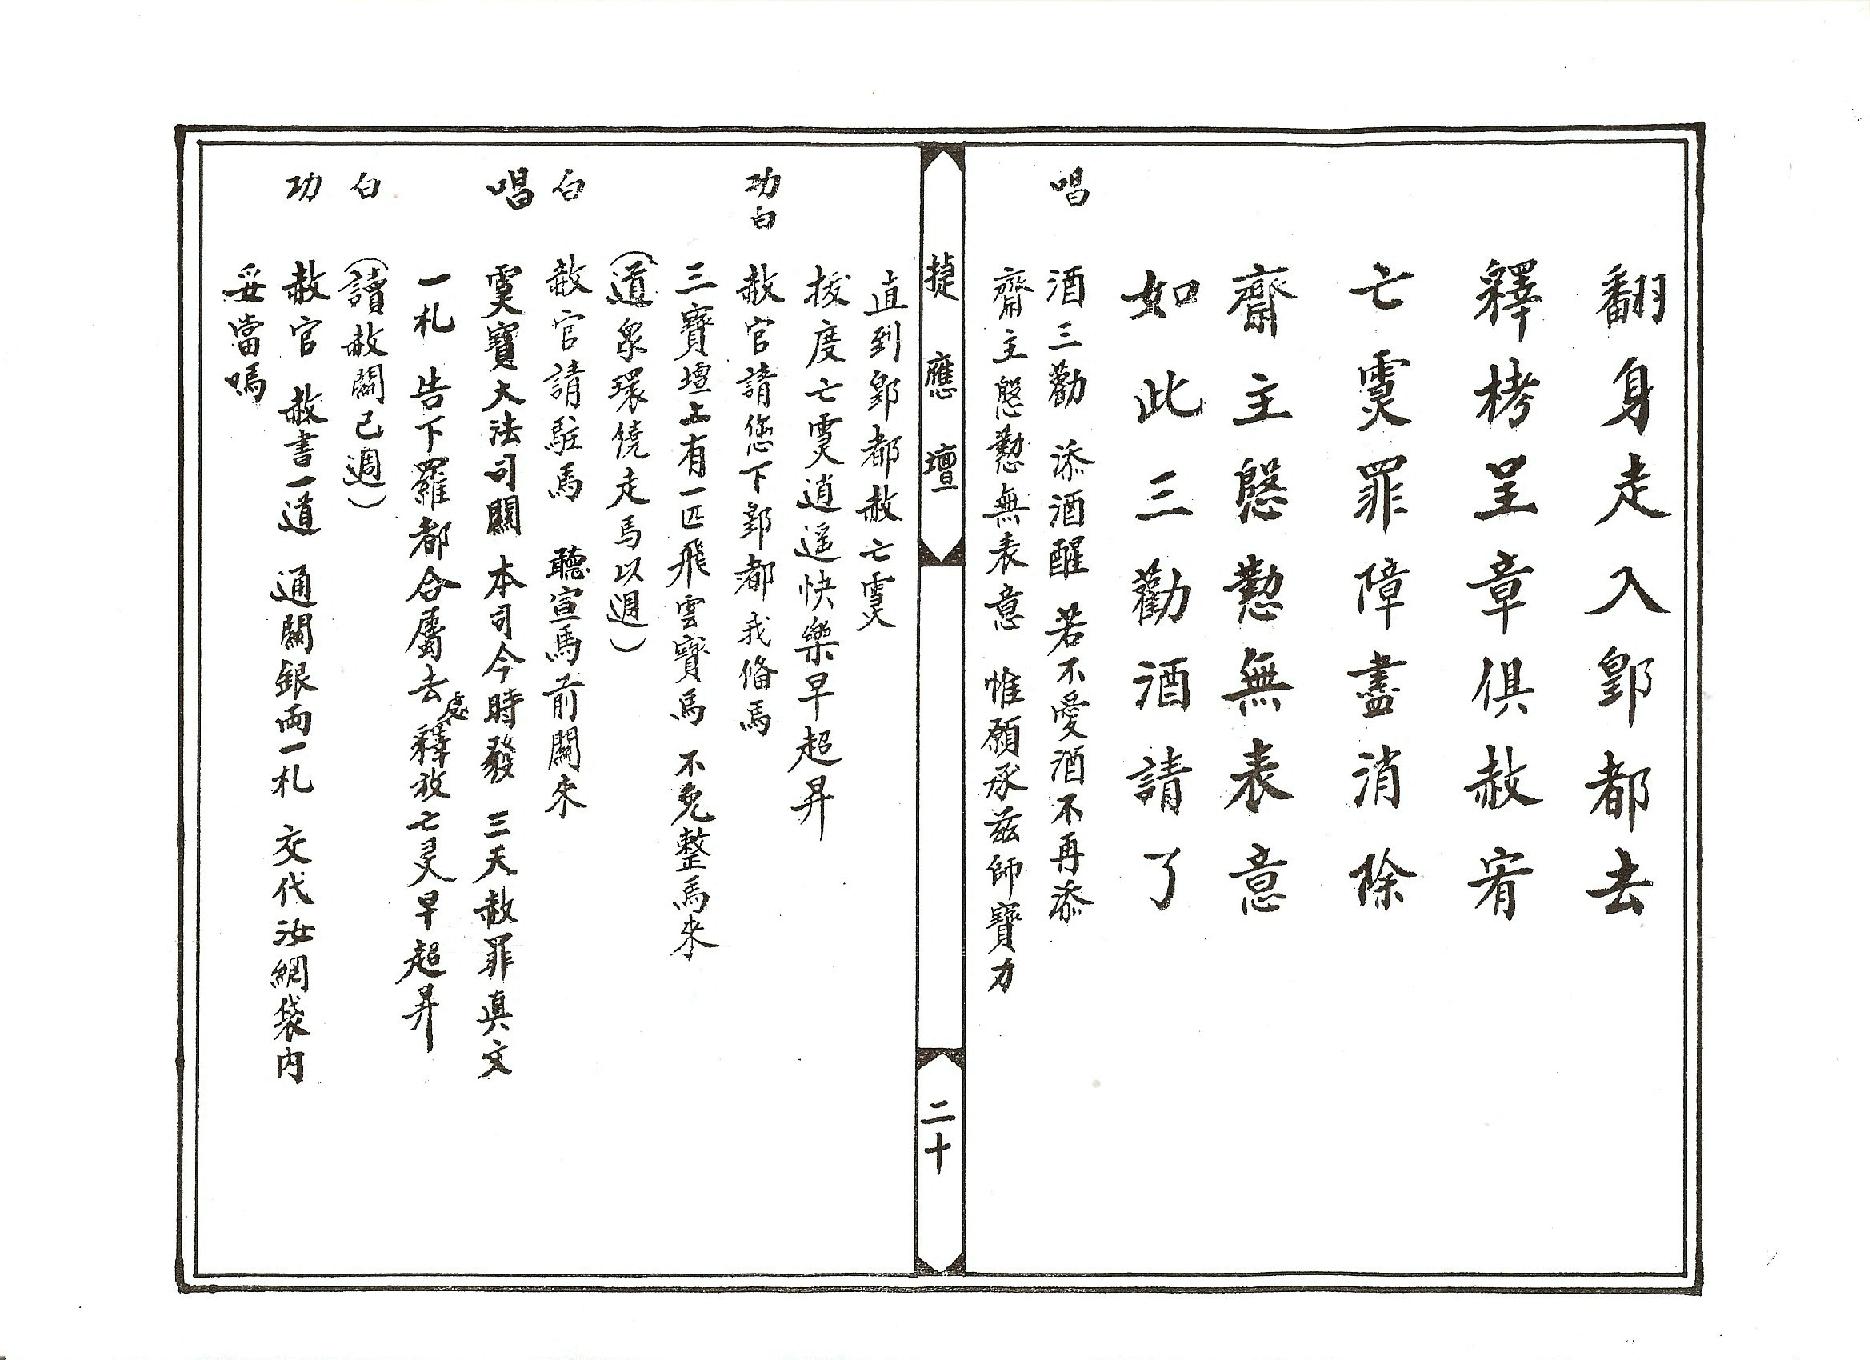 翻身走入酆都去
釋栲呈章俱赦宥
亡霊罪障盡消除
齋主慇懃無表意
如此三勸酒請了
唱 酒三勸 添酒醒 若不愛酒不再添
齋主慇懃無表意 惟願承茲師寶力
捷應壇
二十
直到酆都赦亡霊
拔度亡霊逍遥快樂早超昇
功白 赦官請您下酆都我俻馬
三寶壇上有一匹飛雲寶馬 不免整馬來
(道眾環繞走馬以週)
白 赦官請駐馬 聽宣馬前關來
唱 霊寶大法司關 本司今時發 三天赦罪真文
一札 告下羅都合屬去處釋放亡灵早超昇
白 (讀赦關已週)
功 赦官 赦書一道 通關銀両一札 交代汝網袋內
妥當嗎